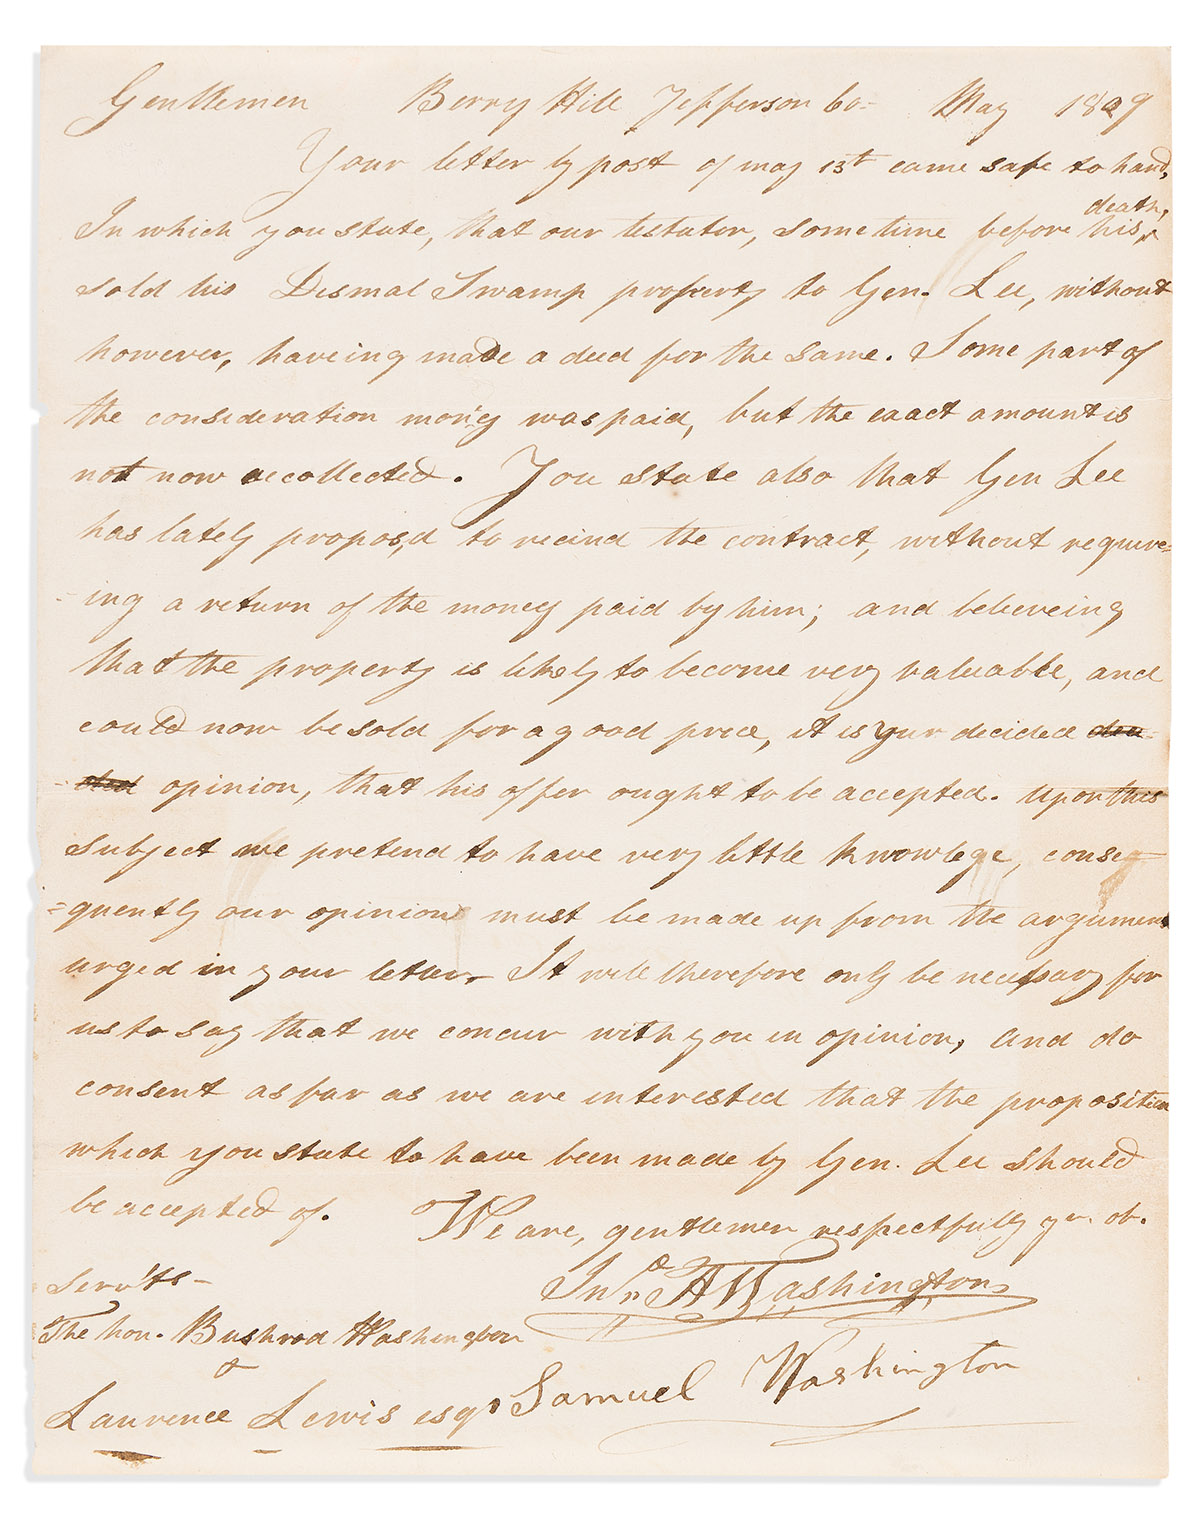 Gentlemen Berry Hill Jefferson Co- May 1809
Your letter by post of may 13th came safe to hand,
death,
In which you state, that our testator, sometime before his,
sold his Dismal Swamp property to Gen. Lee, without
however, haveing made a deed for the same. Some part of
the consideration money was paid, but the exact amount is
not now recollected. You state also that Gen Lee
has lately propos,d to recind the contract, without require=
ing a return of the money paid by him; and beleveing
that the property is likely to become very valuable, and
could now be sold for a good price, it is your decided
opinion, that his offer ought to be accepted. Upon this
subject we pretend to have very little knowlege, conse
=quently our opinions must be made up from the argument
urged in your letter. It will therefore only be necessary for
us to say that we concur with you in opinion, and do
consent as far as we are interested that the proposition
which you state to have been made by Gen. Lee should
be accepted of. We are, gentlemen respectfully yr. ob.
Serv'ts-
Jno. A Washington
The hon. Bushrod Washington
&
Laurence Lewis esqr Samuel Washington